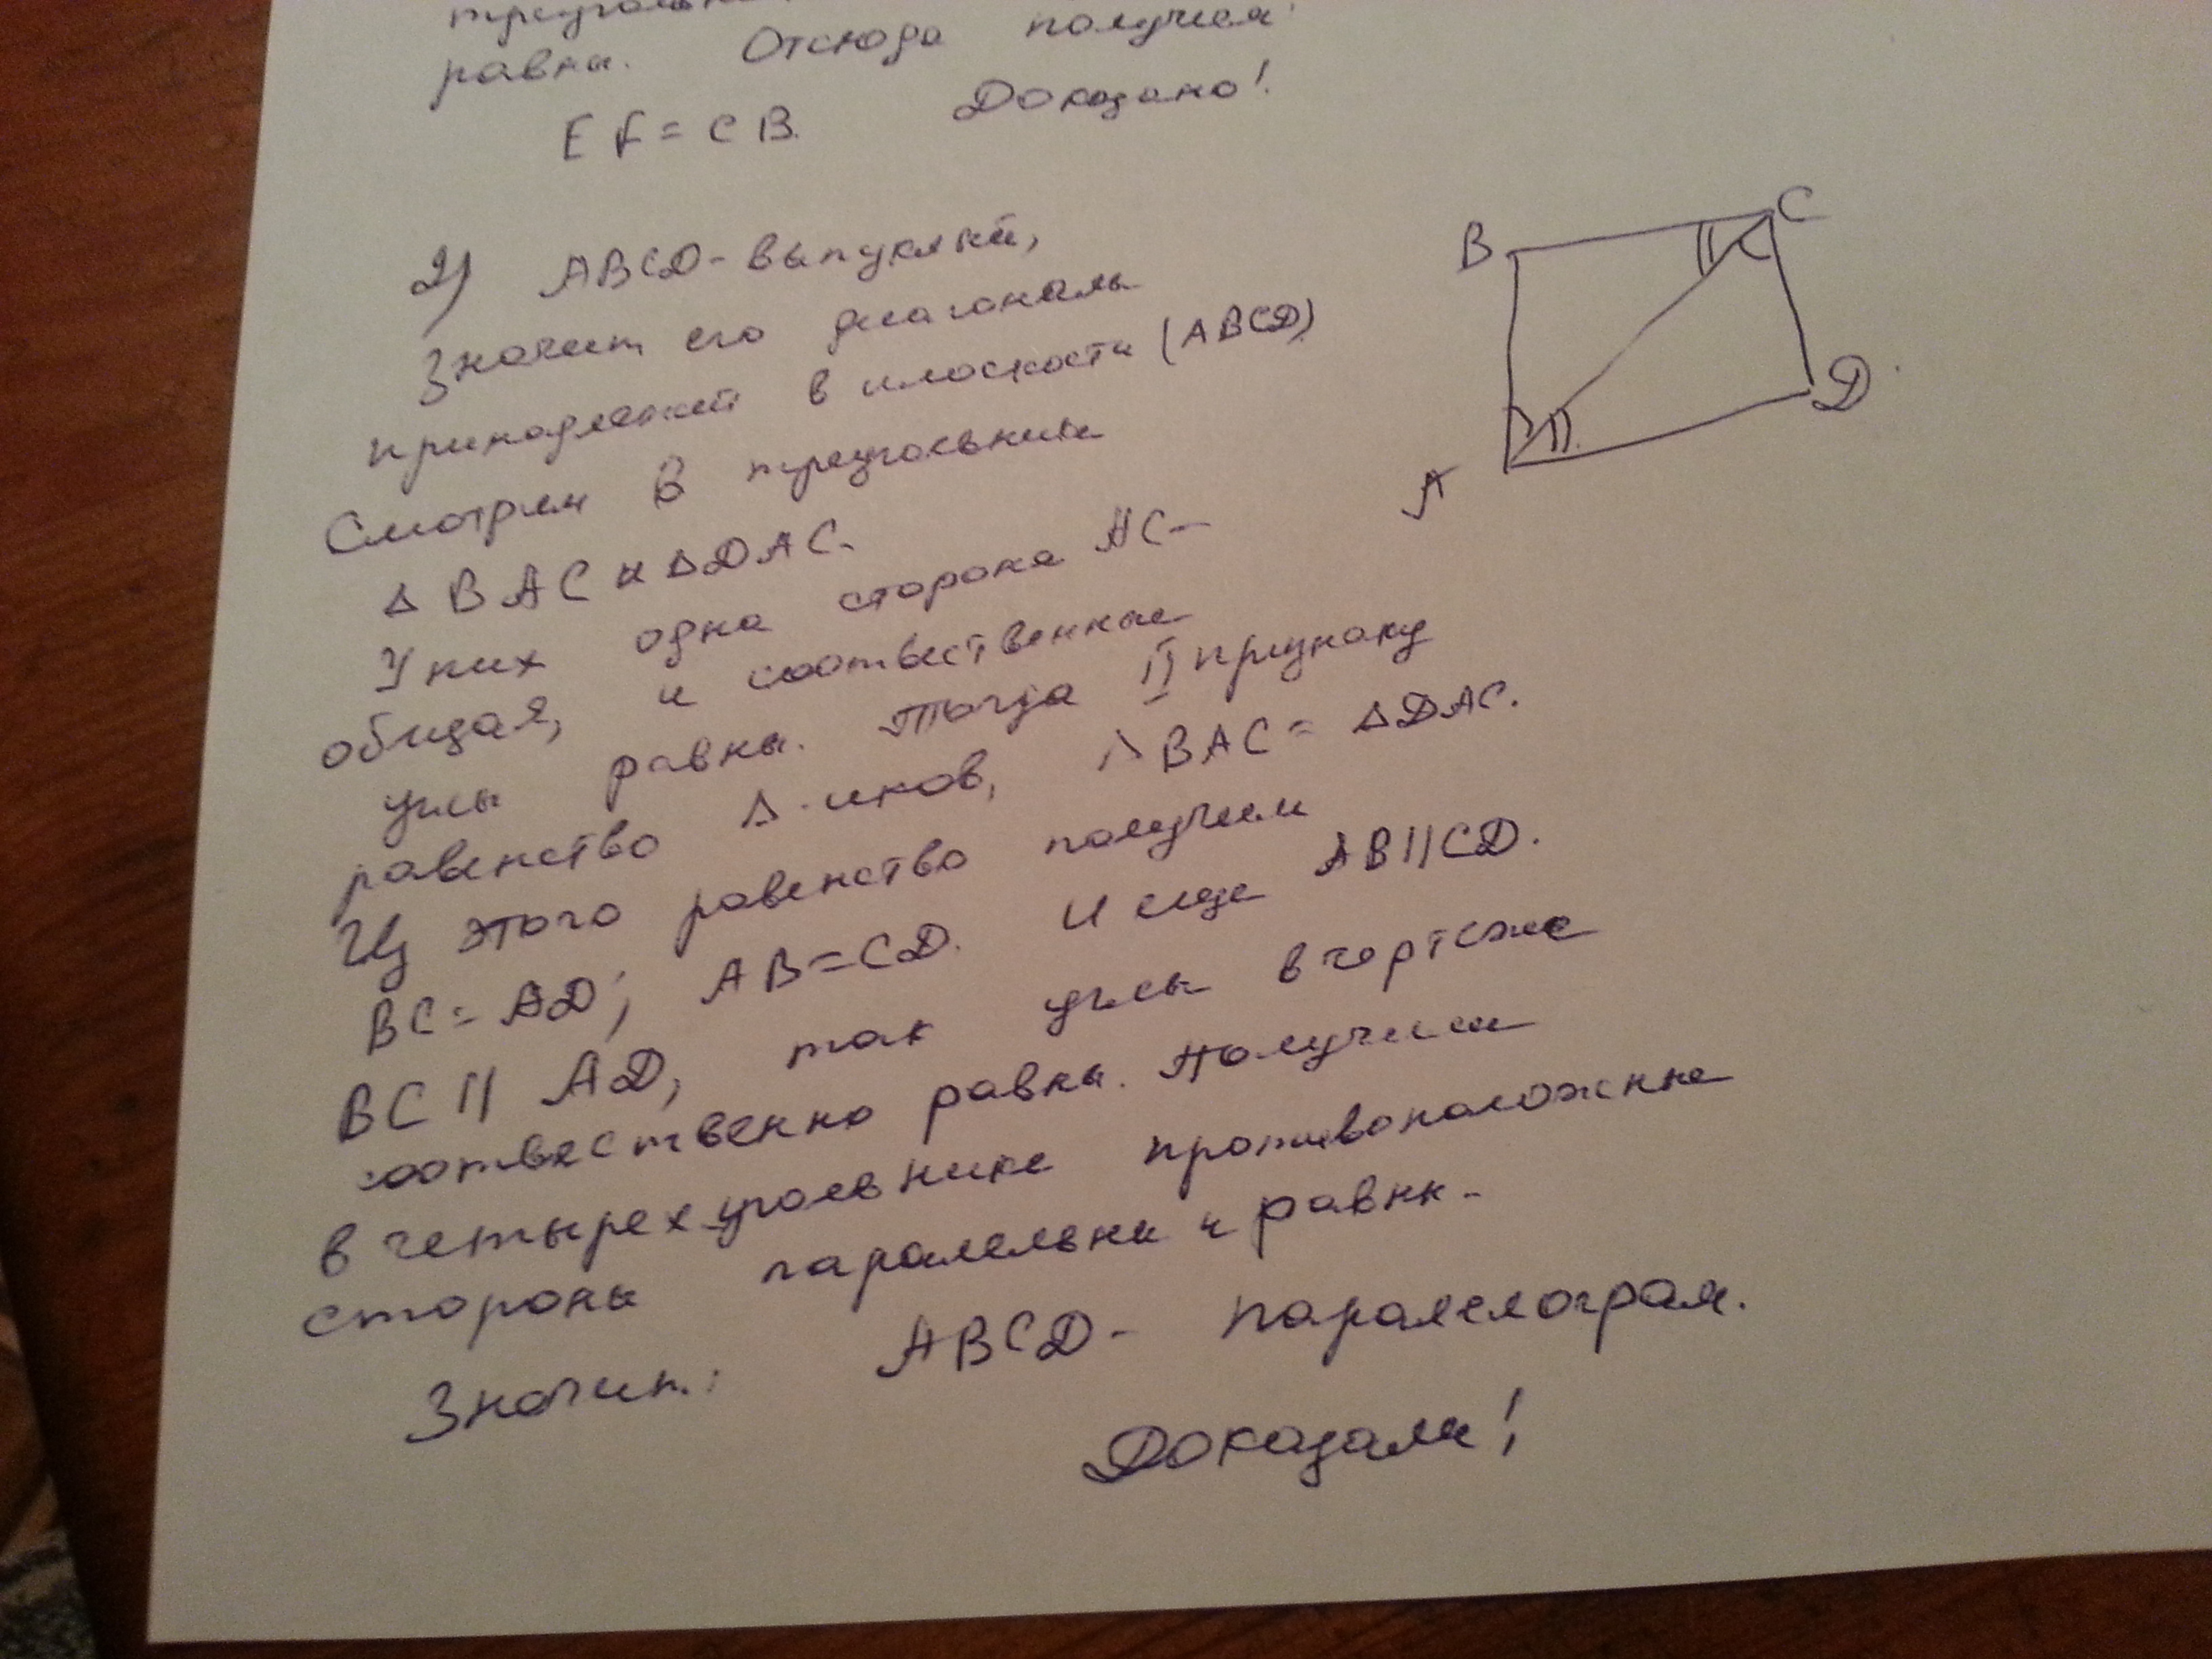 равны. Отсюда получем
EF = CB. Доказано!
2) ABCD - выпуклый,
Значит его диагональ
принадлежит в плоскости (ABCD)
Смотрем в треугольники
Δ BAC и ΔDAC.
У них одна сторона AC -
общая, и соотвественные
углы равны. Тогда II признаку
равенство Δ-иков, ΔBAC = ΔDAC.
Из этого равенство получем
BC = AD; AB = CD. И еще AB || CD.
BC || AD, так углы в чертеже
соотвественно равны. Получем
в четырехугольнике противоположные
стороны паралельны и равны.
Значит: ABCD - паралелограм.
Доказали!
B
C
D
A